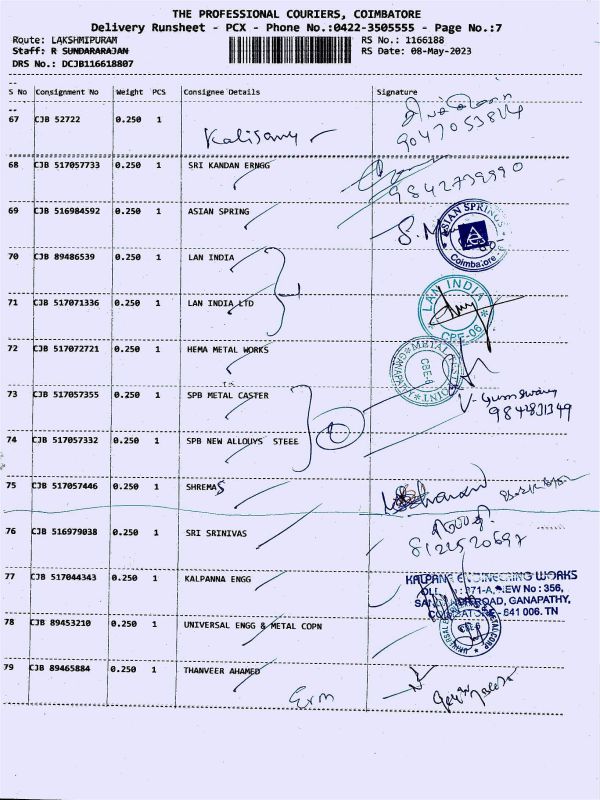 THE PROFESSIONAL COURIERS, COIMBATORE
Delivery Runsheet - PCX - Phone No.:0422-3505555 - Page No.:7
Route: LAKSHMIPURAM RS No.: 1166188
Staff: R SUNDARARAJAN RS Date: 08-May-2023
DRS No.: DCJB116618807
S No Consignment No Weight PCS Consignee Details Signature
67 CJB 52722 0.250 1
9047053814
68 CJB 517057733 0.250 1 SRI KANDAN ERNGG
9842739990
69 CJB 516984592 0.250 1 ASIAN SPRING
ASIAN SPRINGS
Coimbatore
70 CJB 89486539 0.250 1 LAN INDIA
71 CJB 517071336 0.250 1 LAN INDIA LTD
LAN INDIA
CBE-06
72 CJB 517072721 0.250 1 HEMA METAL WORKS
METAL
CBE-6
73 CJB 517057355 0.250 1 SPB METAL CASTER
9842831349
74 CJB 517057332 0.250 1 SPB NEW ALLOUYS STEEE
75 CJB 517057446 0.250 1 SHREMAS
76 CJB 516979038 0.250 1 SRI SRINIVAS
8122520697
77 CJB 517044343 0.250 1 KALPANNA ENGG
KALPANA ENGINEERING WORKS
371-A, NEW No : 356,
ROAD, GANAPATHY,
641 006. TN
78 CJB 89453210 0.250 1 UNIVERSAL ENGG & METAL COPN
79 CJB 89465884 0.250 1 THANVEER AHAMED